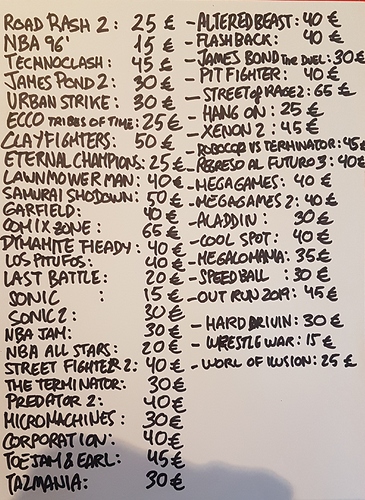 ROAD RASH 2: 25 €
NBA 96' 15 €
TECHNOCLASH: 45 €
JAMES POND 2: 30 €
URBAN STRIKE: 30 €
ECCO TRIBES OF TIME: 25 €
CLAYFIGHTERS: 50 €
ETERNAL CHAMPIONS: 25 €
LAWNMOWER MAN: 40 €
SAMURAI SHODOWN: 50 €
GARFIELD: 40 €
COMIX ZONE: 65 €
DYMAHITE HEADY: 40 €
LOS PITUFOS: 40 €
LAST BATTLE: 20 €
SONIC : 15 €
SONIC 2: 30 €
NBA JAM: 30 €
NBA ALL STARS: 20 €
STREET FIGHTER 2: 40 €
THE TERMINATOR: 30 €
PREDATOR 2: 40 €
MICROMACHINES: 30 €
CORPORATION: 40 €
TOEJAM & EARL: 45 €
TAZMANIA: 30 €
- ALTERED BEAST: 40 €
- FLASHBACK: 40 €
- JAMES BOND THE DUEL: 30 €
- PIT FIGHTER: 40 €
- STREET OF RAGE 2: 65 €
- HANG ON: 25 €
- XENON 2: 45 €
- ROBOCOP VS TERMINATOR: 45 €
- REGRESO AL FUTURO 3: 40 €
- MEGAGAMES: 40 €
- MEGAGAMES 2: 40 €
- ALADDIN: 30 €
- COOL SPOT: 40 €
- MEGALOMANIA: 35 €
- SPEEDBALL: 30 €
- OUT RUN 2019: 45 €
- HARD DRIVIN: 30 €
- WRESTLE WAR: 15 €
- WORL OF ILUSION: 25 €